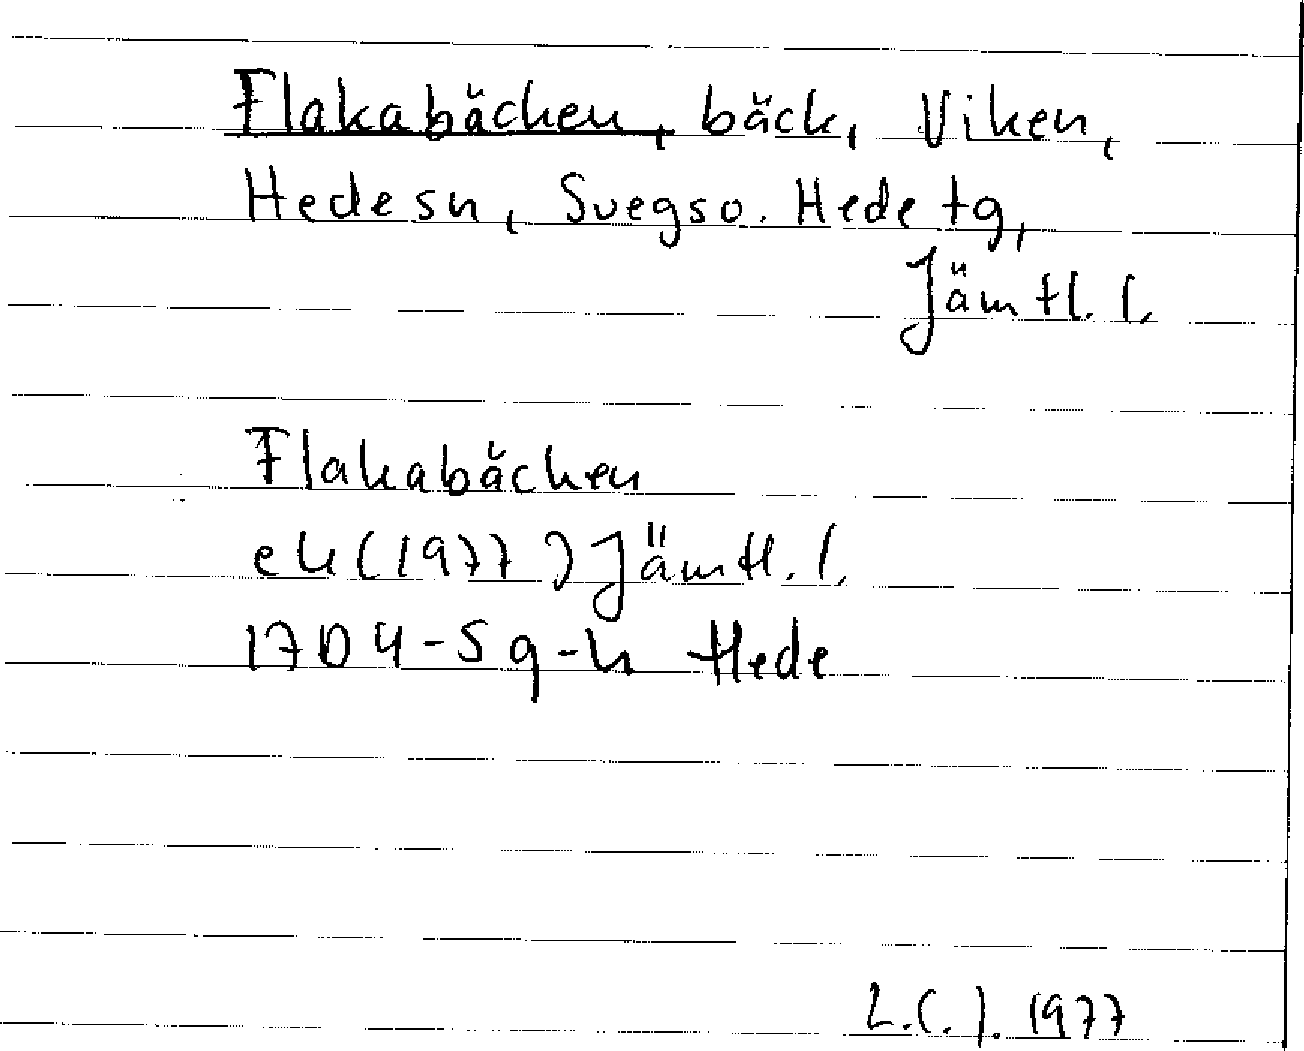 Flakabäcken, bäck, Viken,
Hede sn, Svegs o. Hede tg,
Jämtl. l.
Flakabäcken
ek (1977) Jämtl. l.
17D 4-5 g-h Hede
L.C.J. 1977